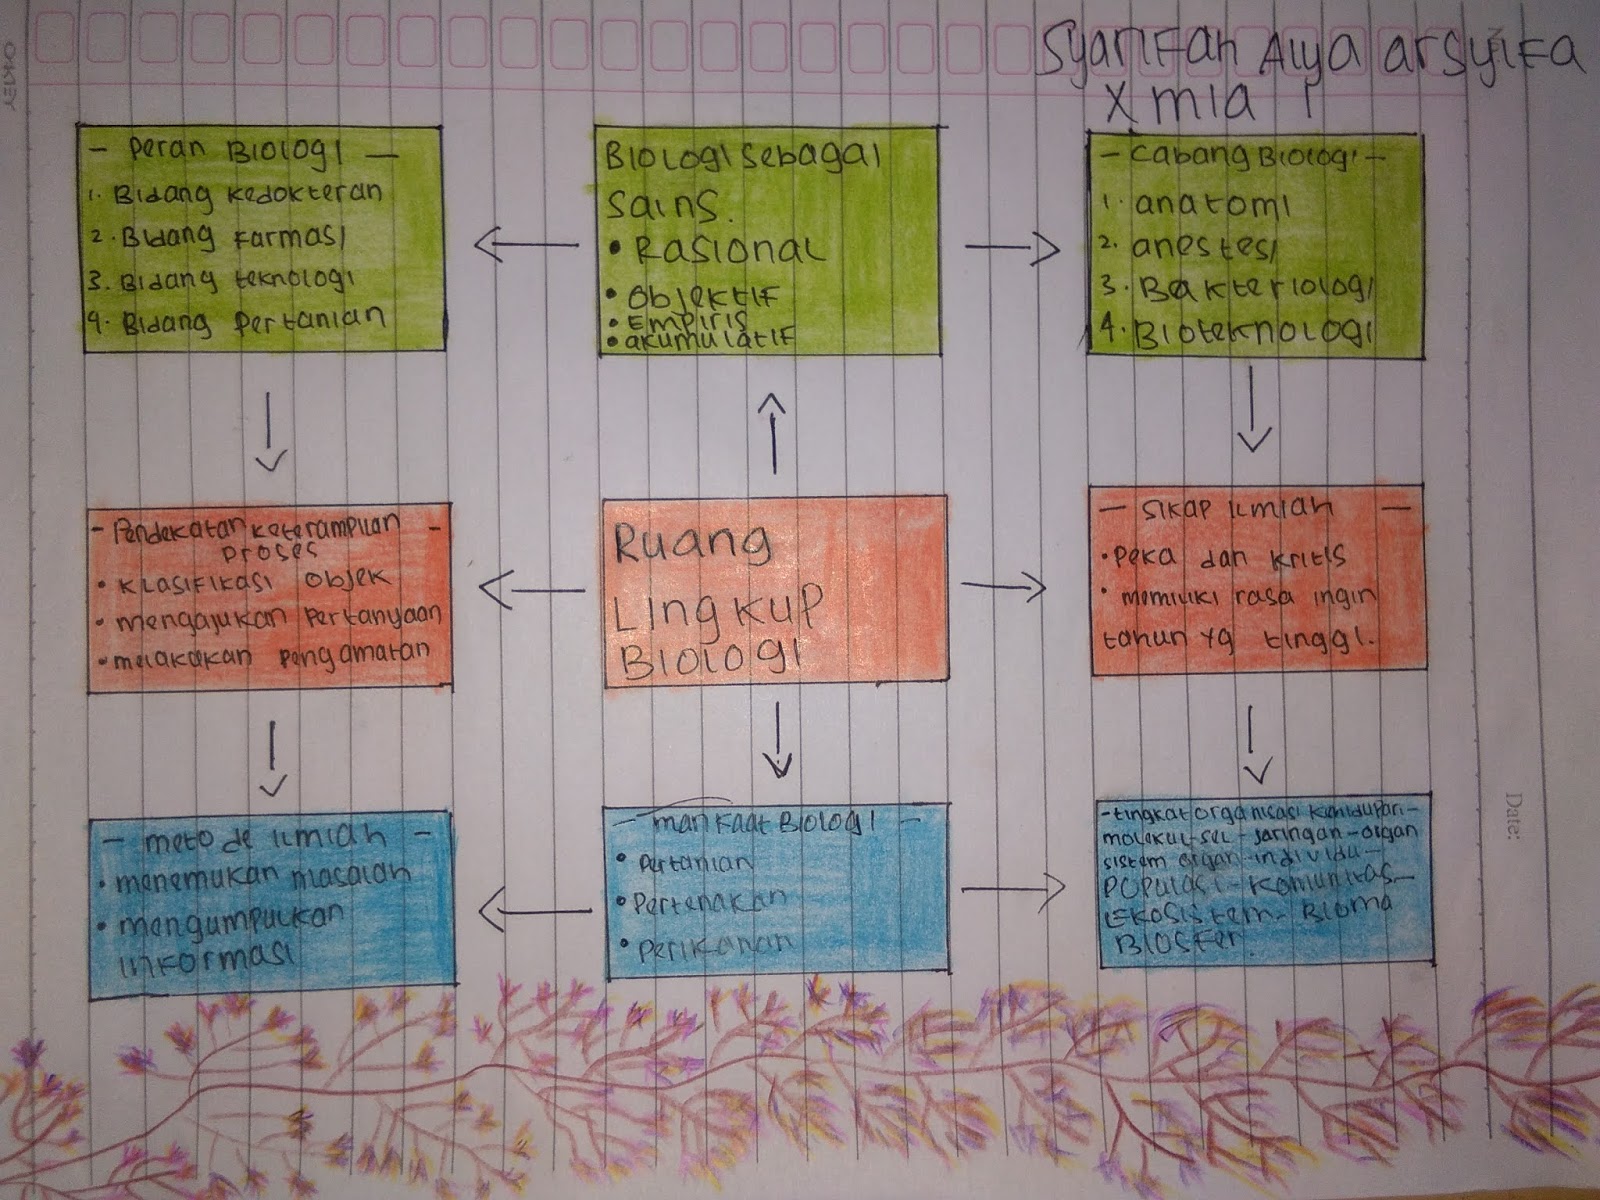 Syarifah Alya arsyifa
X mia 1
- Peran Biologi -
1. Bidang kedokteran
2. Bidang Farmasi
3. Bidang teknologi
4. Bidang Pertanian
Biologi sebagai
Sains.
• Rasional
• Objektif
• Empiris
• akumulatif
- Cabang Biologi -
1. anatomi
2. anestesi
3. Bakteriologi
4. Bioteknologi
- Pendekatan keterampilan -
Proses
• Klasifikasi Objek
• mengajukan Pertanyaan
• melakakan Pengamatan
Ruang
Lingkup
Biologi
- Sikap Ilmiah -
• Peka dan kritis
• memiliki rasa ingin
tahun yg tinggi.
- metode Ilmiah -
• menemukan masalah
• mengumpulkan
informasi
- manfaat Biologi -
• Pertanian
• Pertenakan
• Perikanan
- tingkat organisasi Kehidupan -
molekul - sel - jaringan - organ
sistem organ - individu -
Populasi - Komunitas -
Ekosistem - Bioma
Biosfer.
Date: